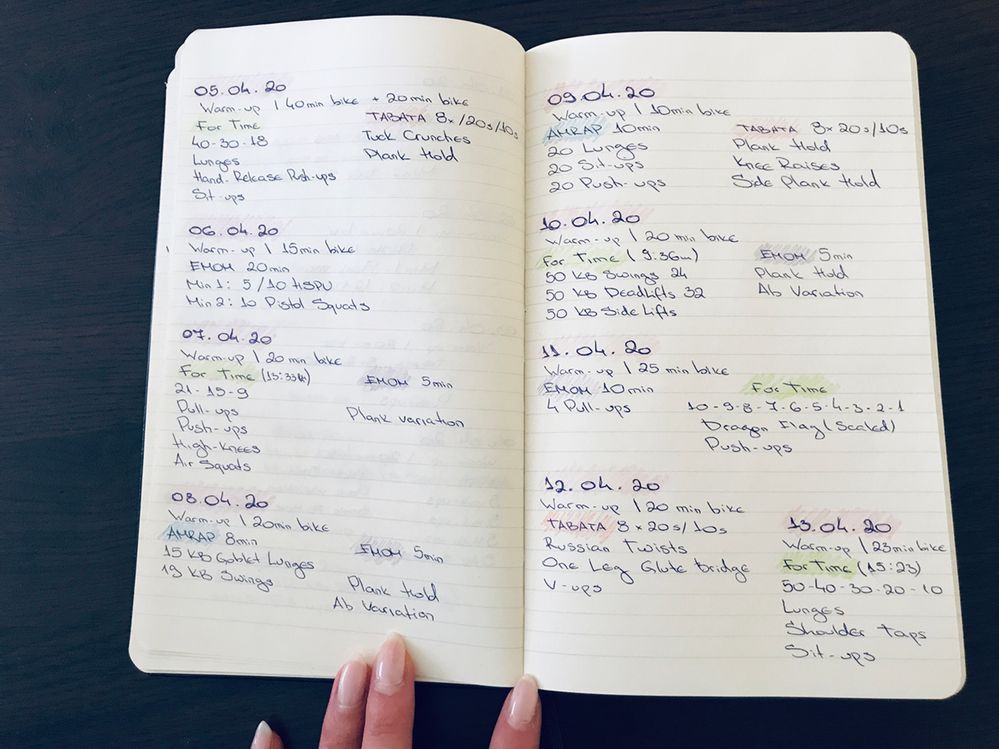 05.04.20
Warm-up | 40min bike + 20min bike
For Time
40-30-18
Lunges
Hand-Release Push-ups
Sit-ups
TABATA 8x/20s/10s
Tuck Crunches
Plank Hold
06.04.20
Warm-up | 15min bike
EMOM 20min
Min 1: 5/10 HSPU
Min 2: 10 Pistol Squats
07.04.20
Warm-up | 20 min bike
For Time
21-15-9
Pull-ups
Push-ups
High-Knees
Air Squats
EMOM 5min
Plank variation
08.04.20
Warm-up | 20min bike
AMRAP 8min
15 KB Goblet Lunges
KB Swings
EMOM 5min
Plank Hold
Ab Variation
09.04.20
Warm-up | 10min bike
AMRAP 10min
20 Lunges
20 Sit-ups
20 Push-ups
TABATA 8x20s/10s
Plank Hold
Knee Raises
Side Plank Hold
10.04.20
Warm-up | 20 min bike
For Time
50 KB Swings 24
50 KB Deadlifts 32
50 KB Side Lifts
EMOM 5min
Plank Hold
Ab Variation
11.04.20
Warm-up | 25 min bike
EMOM 10min
4 Pull-ups
For Time
10-9-8-7-6-5-4-3-2-1
Dragon Flag (Scaled)
Push-ups
12.04.20
Warm-up | 20 min bike
TABATA 8x20s/10s
Russian Twists
One Leg Glute Bridge
V-ups
13.04.20
Warm-up | 23min bike
For Time (15:23)
50-40-30-20-10
Lunges
Shoulder Taps
Sit-ups